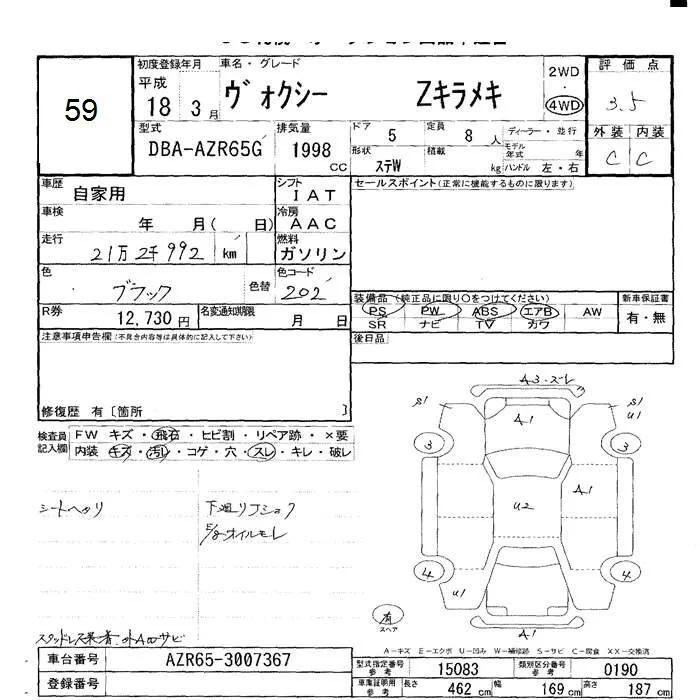 59
初度登録年月 車名・グレード 2WD 評価点
平成 18 3月 ヴォクシー Zキラメキ ・ 4WD 3.5
型式 排気量 ドア 5 定員 8人 ディーラー・並行 外装 内装
DBA-AZR65G 1998 CC 形状 ステW 積載 kg モデル年式 年 ハンドル 左・右 C C
車歴 自家用 シフト IAT セールスポイント(正常に機能するものに限ります)
車検 年 月( 日) 冷房 AAC
走行 21万2千992 km 燃料 ガソリン
色 ブラック 色替 色コード 202
装備品(純正品に限り○をつけてください) 新車保証書
PS PW ABS エアB AW 有・無
SR ナビ TV カワ
R券 12,730円 名変通知期限 月 日
注意事項申告欄(不具合内容等は具体的に記入して下さい) 後日品
修復歴 有〔箇所 〕
検査員記入欄 FW キズ・飛石・ヒビ割・リペア跡・×要
内装 キズ・汚レ・コゲ・穴・スレ・キレ・破レ
シートヘタリ 下廻リフショク
E/gオイルモレ
A3・ズレ
S1 A1 S1
U1
3 3
U2 A1
4 4
U1
有
スペア A1
A-キズ E-エクボ U-凹み W-補修跡 S-サビ C-腐食 XX-交換済
車台番号 AZR65-3007367 型式指定番号 参考 15083 類別区分番号 参考 0190
登録番号 車庫証明用 参考 長さ 462 cm 幅 169 cm 高さ 187 cm